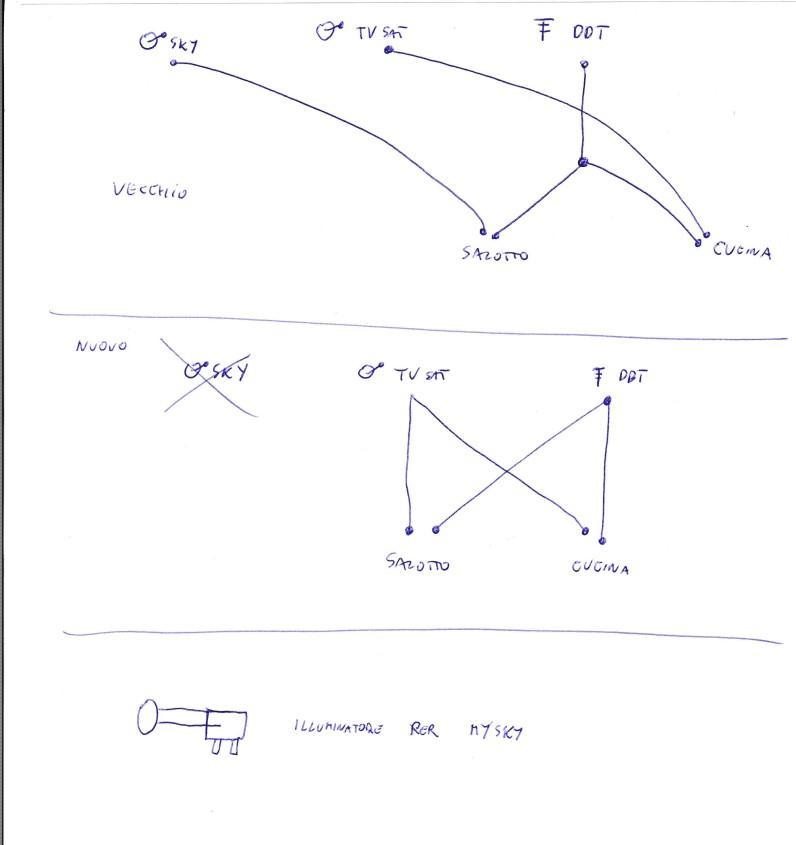 SKY
TV SAT
DDT
VECCHIO
SALOTTO
CUCINA
NUOVO
SKY
TV SAT
DDT
SALOTTO
CUCINA
ILLUMINATORE PER MYSKY